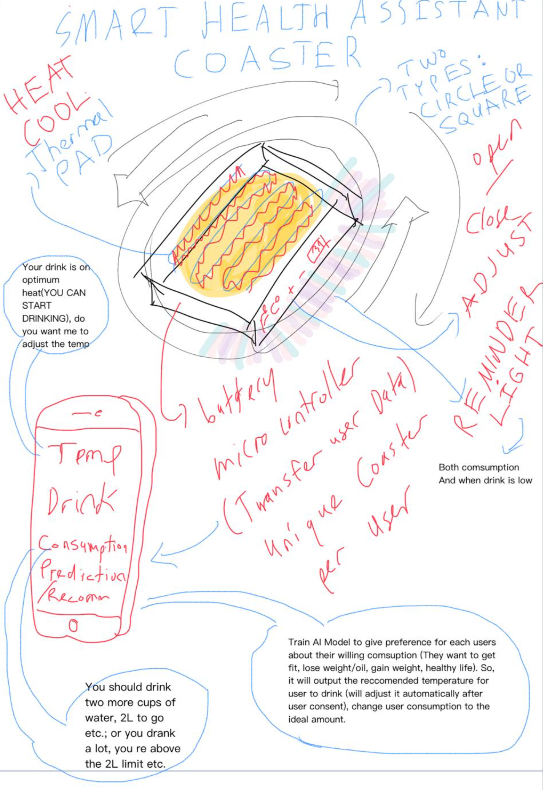 SMART HEALTH ASSISTANT
COASTER
HEAT
COOL
Thermal
PAD
TWO
TYPES:
CIRCLE OR
SQUARE
open
Close
ADJUST
REMINDER
LIGHT
Your drink is on
optimum
heat(YOU CAN
START
DRINKING), do
you want me to
adjust the temp
buttery
micro controller
(Transfer user Data)
unique Coaster
per user
Both comsumption
And when drink is low
Temp
Drink
Consumption
Prediction
/Recomm
Train AI Model to give preference for each users
about their willing comsuption (They want to get
fit, lose weight/oil, gain weight, healthy life). So,
it will output the reccomended temperature for
user to drink (will adjust it automatically after
user consent), change user consumption to the
ideal amount.
You should drink
two more cups of
water, 2L to go
etc.; or you drank
a lot, you re above
the 2L limit etc.